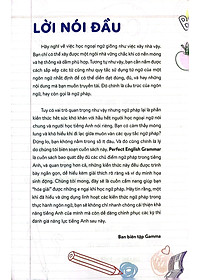 LỜI NÓI ĐẦU
Hãy nghĩ về việc học ngoại ngữ giống như việc xây nhà vậy.
Bạn chỉ có thể xây được một ngôi nhà vững chắc khi có nền móng
và hệ thống xà dầm phù hợp. Tương tự như vậy, bạn cần nắm được
cách sắp xếp các từ cũng như quy tắc sử dụng từ ngữ của một
ngôn ngữ nhất định để có thể diễn đạt đúng, đủ, và hay những
nội dung mà bạn muốn truyền tải. Đó chính là cấu trúc của ngôn
ngữ, hay còn gọi là ngữ pháp.
Tuy có vai trò quan trọng như vậy nhưng ngữ pháp lại là phần
kiến thức hết sức khô khan với hầu hết người học ngoại ngữ nói
chung và người học tiếng Anh nói riêng. Bạn có cảm thấy mông
lung và khó hiểu khi đi lạc giữa muôn vàn các quy tắc ngữ pháp?
Đừng lo, bạn không nằm trong số ít đâu. Và đó cũng chính là lý
do chúng tôi biên soạn cuốn sách này. Perfect English Grammar
là cuốn sách bao quát đầy đủ các chủ điểm ngữ pháp trong tiếng
Anh, và quan trọng hơn cả, những kiến thức này đều được trình
bày ngắn gọn, dễ hiểu kèm giải thích rõ ràng và ví dụ minh họa
sinh động. Chúng tôi mong, đây sẽ là cuốn cẩm nang giúp bạn
"hóa giải" được những e ngại khi học ngữ pháp. Hãy tin rằng, một
khi đã hiểu và ứng dụng linh hoạt các kiến thức ngữ pháp trong
thực hành ngôn ngữ, bạn sẽ không chỉ nhanh chóng cải thiện khả
năng tiếng Anh của mình mà còn dễ dàng chinh phục các kỳ thi
đánh giá năng lực tiếng Anh sau này.
Ban biên tập Gamma